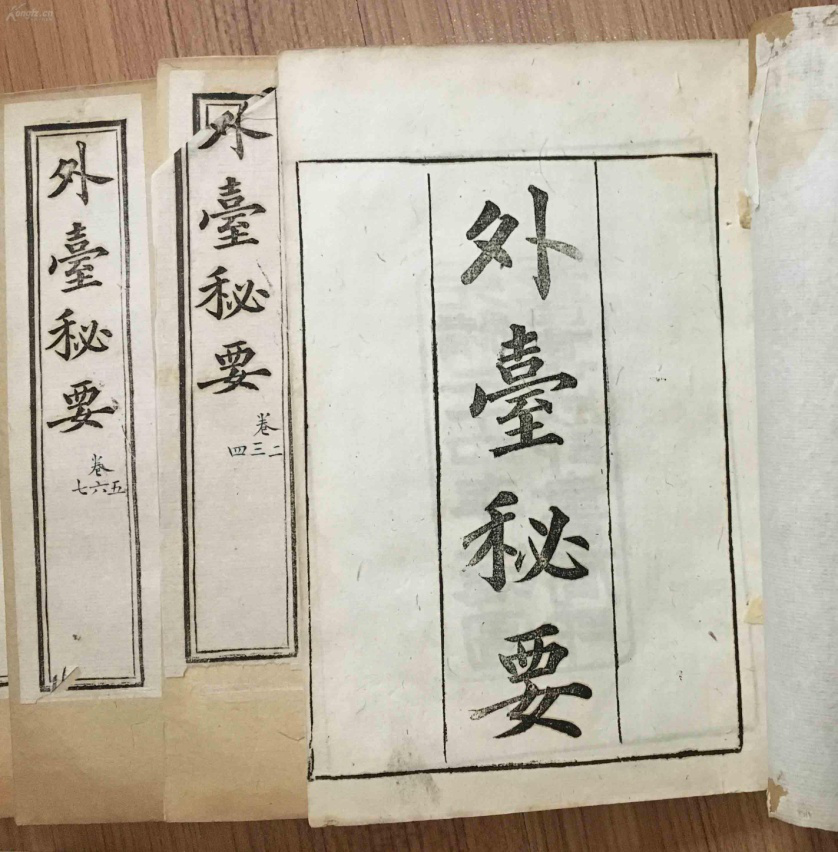 外臺秘要
外臺秘要
卷
二三四
外臺秘要
卷
五六七